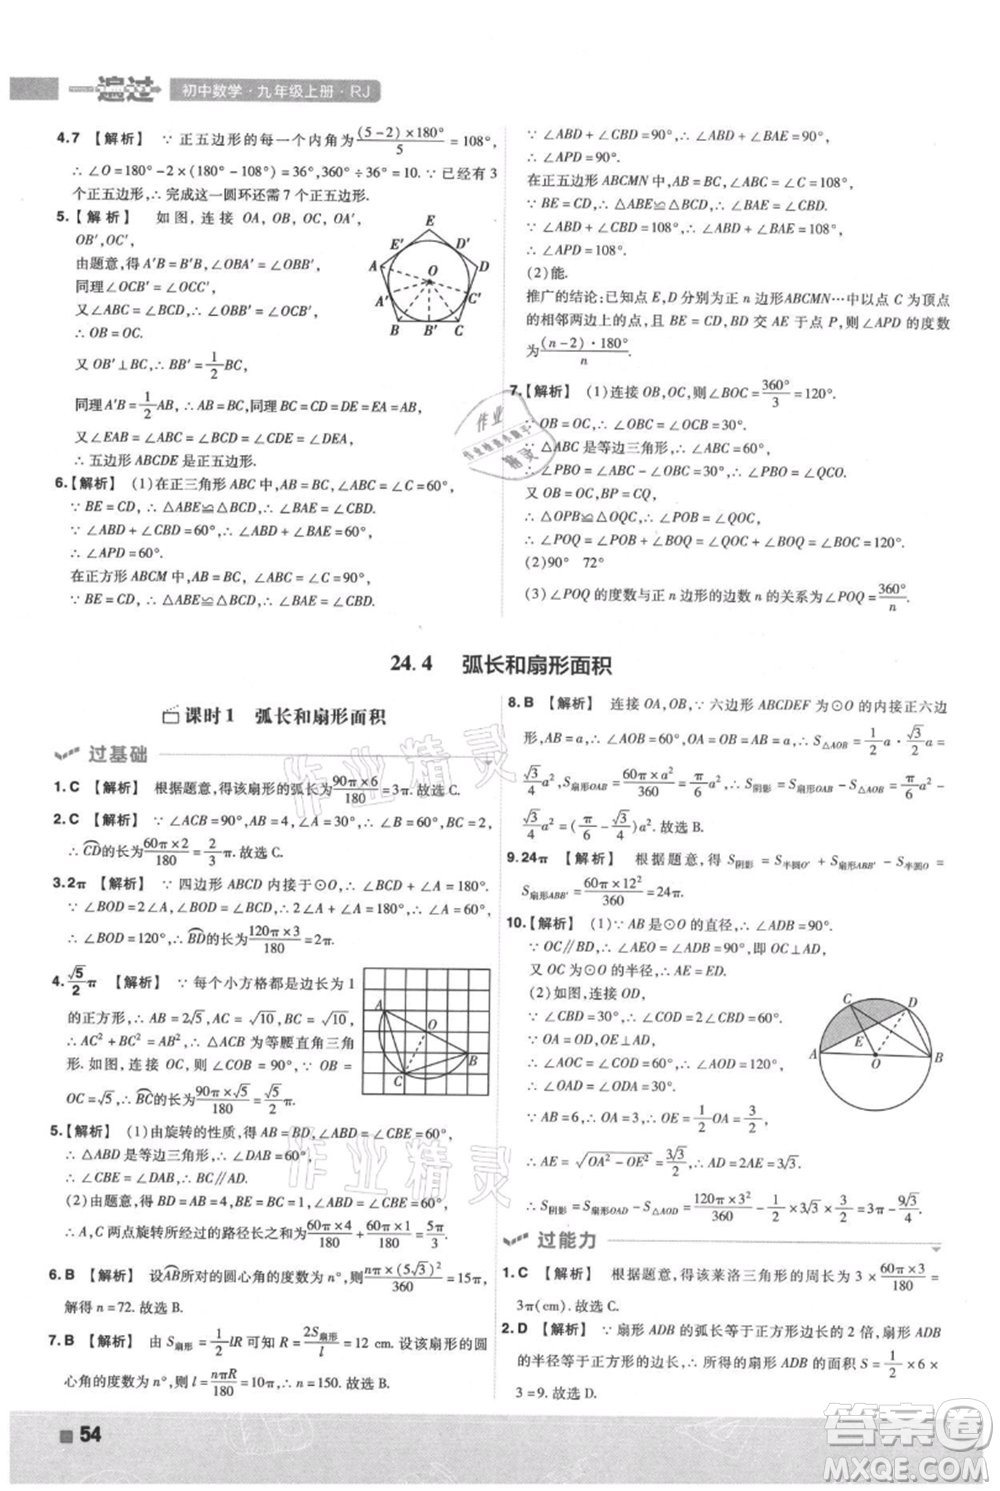 一遍过 初中数学·九年级上册·RJ
4.7 【解析】 ∵ 正五边形的每一个内角为(5-2)×180°/5=108°,
∴ ∠O=180°-2×(180°-108°)=36°,360°÷36°=10. ∵ 已经有3
个正五边形,∴ 完成这一圆环还需7个正五边形.
5.【解析】 如图,连接 OA,OB,OC,OA′,
OB′,OC′,
由题意,得 A′B=B′B,∠OBA′=∠OBB′,
同理 ∠OCB′=∠OCC′.
又 ∵ ∠ABC=∠BCD,∴ ∠OBC=∠OCB,
∴ OB=OC.
又 ∵ OB′⊥BC,∴ BB′=1/2 BC,
同理 A′B=1/2 AB,∴ AB=BC,同理 BC=CD=DE=AE.
又 ∵ ∠EAB=∠ABC,同理 ∠ABC=∠BCD=∠CDE=∠DEA,
∴ 五边形 ABCDE 是正五边形.
6.【解析】 (1)在正三角形 ABC 中,AB=BC,∠ABC=∠C=60°,
∵ BE=CD,∴ △ABE≌△BCD,∴ ∠BAE=∠CBD.
∵ ∠ABD+∠CBD=60°,∴ ∠ABD+∠BAE=60°,
∴ ∠APD=60°.
在正方形 ABCM 中,AB=BC,∠ABC=∠C=90°,
∵ BE=CD,∴ △ABE≌△BCD,∴ ∠BAE=∠CBD.
∵ ∠ABD+∠CBD=90°,∴ ∠ABD+∠BAE=90°,
∴ ∠APD=90°.
在正五边形 ABCMN 中,AB=BC,∠ABC=∠C=108°,
∵ BE=CD,∴ △ABE≌△BCD,∴ ∠BAE=∠CBD.
∵ ∠ABD+∠CBD=108°,∴ ∠ABD+∠BAE=108°,
∴ ∠APD=108°.
(2)能.
推广的结论:已知点 E,D 分别为正 n 边形ABCMN…中以点 C 为顶点
的相邻两边上的点,且 BE=CD,BD 交 AE 于点 P,则∠APD 的度数
为(n-2)·180°/n.
7.【解析】 (1)连接 OB,OC,则∠BOC=360°/3=120°.
∵ OB=OC,∴ ∠OBC=∠OCB=30°.
∵ △ABC 是等边三角形,∴ ∠ABC=60°,
∴ ∠PBO=∠ABC-∠OBC=30°,∴ ∠PBO=∠OCQ=30°.
又 ∵ OB=OC,BP=CQ,
∴ △OPB≌△OQC,∴ ∠POB=∠QOC,
∴ ∠POQ=∠POB+∠BOQ=∠QOC+∠BOQ=∠BOC=120°.
(2)90° 72°
(3)∠POQ 的度数与正 n 边形的边数 n 的关系为∠POQ=360°/n.
E
E′ D′
A D
O
A′ C′
B B′ C
24.4 弧长和扇形面积
课时1 弧长和扇形面积
过基础
1.C 【解析】 根据题意,得该扇形的弧长为90π×6/180=3π.故选 C.
2.C 【解析】 ∵ ∠ACB=90°,∠A=30°,∴ ∠B=60°,BC=1/2 AB=2,
∴ CD的长为60π×2/180=2/3 π.故选 C.
3.2π 【解析】 ∵ 四边形 ABCD 内接于⊙O,∴ ∠BCD+∠A=180°.
∵ ∠BOD=2∠A,∠BOD=∠BCD,∴ 2∠A+∠A=180°,∴ ∠A=60°,
∴ ∠BOD=120°,∴ BD的长为120π×3/180=2π.
4.√5/2 π 【解析】 ∵ 每个小方格都是边长为1
的正方形,∴ AB=2√5,AC=√10,BC=√10,
∴ AC²+BC²=AB²,∴ △ACB 为等腰直角三角
形. 连接 OC,则∠COB=90°. ∵ OB=
OC=√5,∴ BC的长为90π×√5/180=√5/2 π.
A
O
B
C
5.【解析】 (1)由旋转的性质,得 AB=BD,∠ABD=∠CBE=60°,
∴ △ABD 是等边三角形,∴ ∠DAB=60°,
∴ ∠CBE=∠DAB,∴ BC∥AD.
(2)由题意,得 AB=4,BC=1,∠ABD=∠CBE=60°,
∴ A,C 两点旋转所经过的路径长之和为60π×4/180+60π×1/180=5π/3.
6.B 【解析】 设AB所对的圆心角的度数为n°,则nπ×(5√3)²/360=15π,
解得 n=72.故选 B.
7.B 【解析】 由 S扇形=1/2 lR 可知 R=2S扇形/l=12 cm. 设该扇形的圆
心角的度数为 n°,∴ l=nπR/180,∴ n=150.故选 B.
8.B 【解析】 连接 OA,OB,∵ 六边形 ABCDEF 为⊙O 的内接正六边
形,AB=a,∴ ∠AOB=60°,OA=OB=AB=a,∴ S△AOB=1/2 a·√3/2 a=
√3/4 a²,∴ S扇形OAB=60π×a²/360=π/6 a²,∴ S阴影=S扇形OAB-S△AOB=π/6 a²-
√3/4 a²=(π/6-√3/4)a².故选 B.
9.24π 【解析】 根据题意,得 S阴影=S半圆O′+S扇形ABB′-S半圆O=
S扇形ABB′=60π×12²/360=24π.
10.【解析】 (1)∵ AB 是⊙O 的直径,∴ ∠ADB=90°.
∵ OC∥BD,∴ ∠AEO=∠ADB=90°,即 OC⊥AD,
又 ∵ OC 为⊙O 的半径,∴ AE=ED.
(2)如图,连接 OD,
∵ OC⊥AD,∴ AC=CD,
∴ ∠COD=2∠CBD=60°.
∵ OA=OD,
∴ ∠AOC=∠COD=60°,
∴ ∠OAD=∠ODA=30°.
∵ AB=6,∴ OA=3,∴ OE=1/2 OA=3/2,
∴ AE=√OA²-OE²=3√3/2,∴ AD=2AE=3√3,
∴ S阴影=S扇形OAD-S△AOD=120π×3²/360-1/2×3√3×3/2=3π-9√3/4.
C D
E
A O B
过能力
1.C 【解析】 根据题意,得该莱洛三角形的周长为 3×60π×1/180=
3π(cm).故选 C.
2.D 【解析】 ∵ 扇形 ADB 的弧长等于正方形边长的 2 倍,扇形 ADB
的半径等于正方形的边长,∴ 所得的扇形 ADB 的面积 S=1/2×6×
3=9.故选 D.
54
作业精灵
作业精灵
作业
精灵
答案圈
MXQE.COM